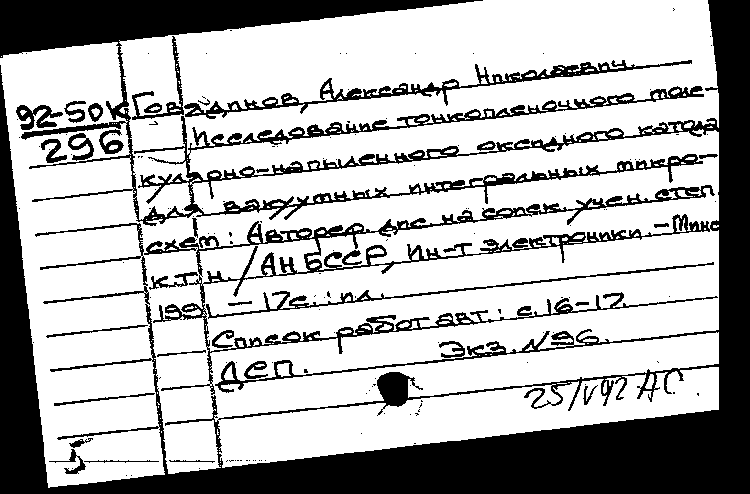 92-50К Говядинов, Александр Николаевич.
296 Исследование тонкопленочного моле-
кулярно-напыленного оксидного катода
для вакуумных интегральных микро-
схем: Автореф. дис. на соиск. учен. степ.
к.т.н. / АН БССР, Ин-т электроники. - Минс
1991 - 17с. : ил.
Список работ авт.: с. 16-17.
ДСП. Экз. №96.
25/V92 АС.
5